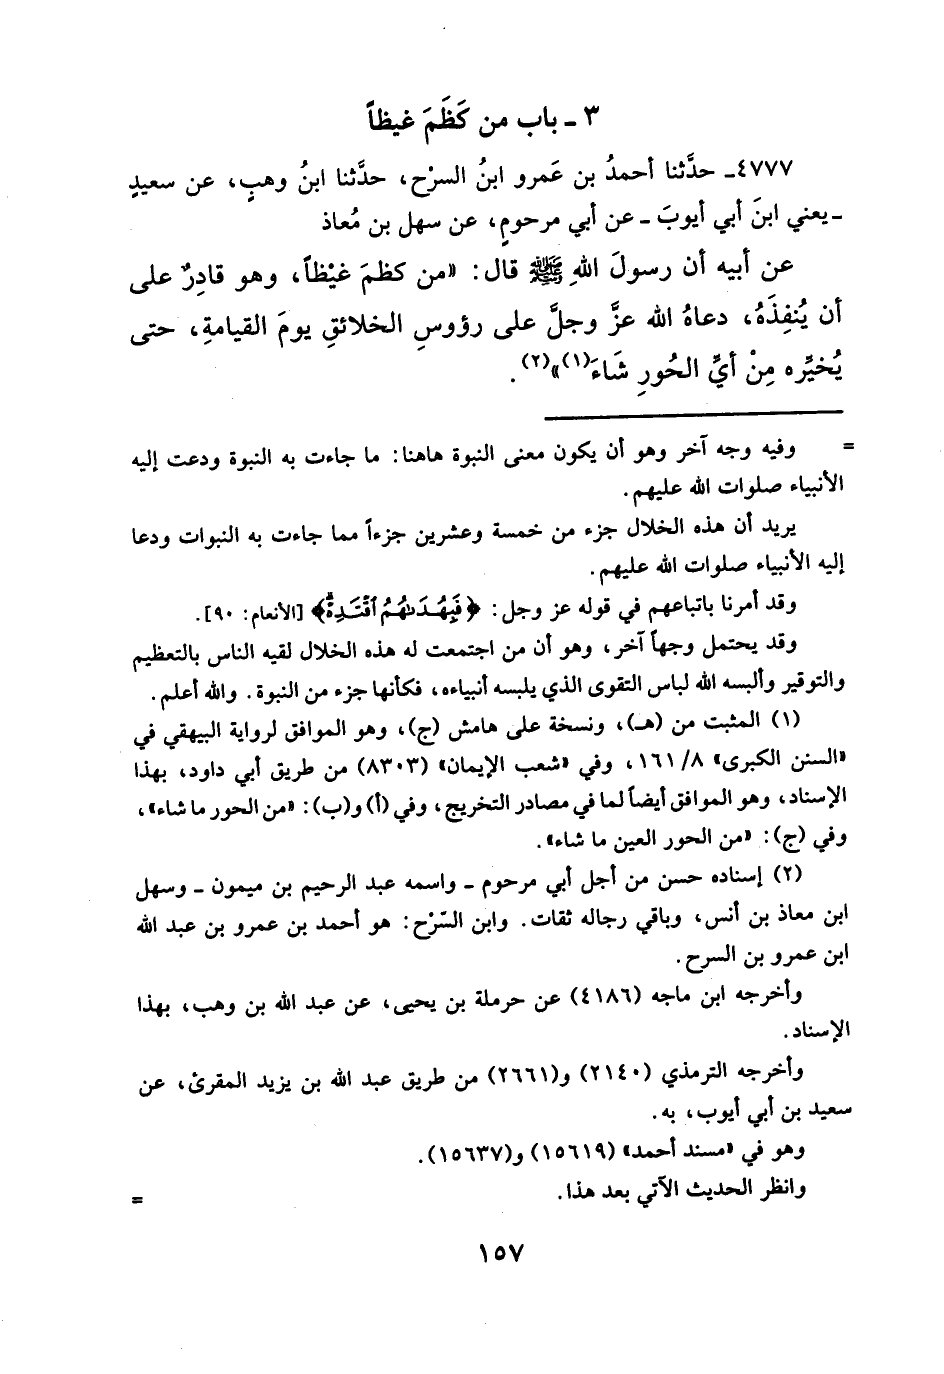 ٣ ـ باب من كَظَمَ غيظاً
٤٧٧٧ـ حدَّثنا أحمدُ بن عَمرو ابنُ السرْح، حدَّثنا ابنُ وهبٍ، عن سعيدٍ
ـ يعني ابنَ أبي أيوبَ ـ عن أبي مرحومٍ، عن سهل بن مُعاذ
عن أبيه أن رسولَ اللهِ ﷺ قال: «من كظمَ غيْظاً، وهو قادِرٌ على
أن يُنفِذَهُ، دعاهُ الله عزَّ وجلَّ على رؤوسِ الخلائقِ يومَ القيامةِ، حتى
يُخيِّره مِنْ أيِّ الحُورِ شَاءَ(١)»(٢).
= وفيه وجه آخر وهو أن يكون معنى النبوة هاهنا: ما جاءت به النبوة ودعت إليه
الأنبياء صلوات الله عليهم.
يريد أن هذه الخلال جزء من خمسة وعشرين جزءاً مما جاءت به النبوات ودعا
إليه الأنبياء صلوات الله عليهم.
وقد أمرنا باتباعهم في قوله عز وجل: ﴿فَبِهُدَىٰهُمُ ٱقْتَدِهْ﴾ [الأنعام: ٩٠].
وقد يحتمل وجهاً آخر، وهو أن من اجتمعت له هذه الخلال لقيه الناس بالتعظيم
والتوقير وألبسه الله لباس التقوى الذي يلبسه أنبياءه، فكأنها جزء من النبوة. والله أعلم.
(١) المثبت من (هـ)، ونسخة على هامش (ج)، وهو الموافق لرواية البيهقي في
«السنن الكبرى» ٨/ ١٦١، وفي «شعب الإيمان» (٨٣٠٣) من طريق أبي داود، بهذا
الإسناد، وهو الموافق أيضاً لما في مصادر التخريج، وفي (أ) و(ب): «من الحور ما شاء»،
وفي (ج): «من الحور العين ما شاء».
(٢) إسناده حسن من أجل أبي مرحوم ـ واسمه عبد الرحيم بن ميمون ـ وسهل
ابن معاذ بن أنس، وباقي رجاله ثقات. وابن السّرْح: هو أحمد بن عمرو بن عبد الله
ابن عمرو بن السرح.
وأخرجه ابن ماجه (٤١٨٦) عن حرملة بن يحيى، عن عبد الله بن وهب، بهذا
الإسناد.
وأخرجه الترمذي (٢١٤٠) و(٢٦٦١) من طريق عبد الله بن يزيد المقرئ، عن
سعيد بن أبي أيوب، به.
وهو في «مسند أحمد» (١٥٦١٩) و(١٥٦٣٧).
وانظر الحديث الآتي بعد هذا. =
١٥٧